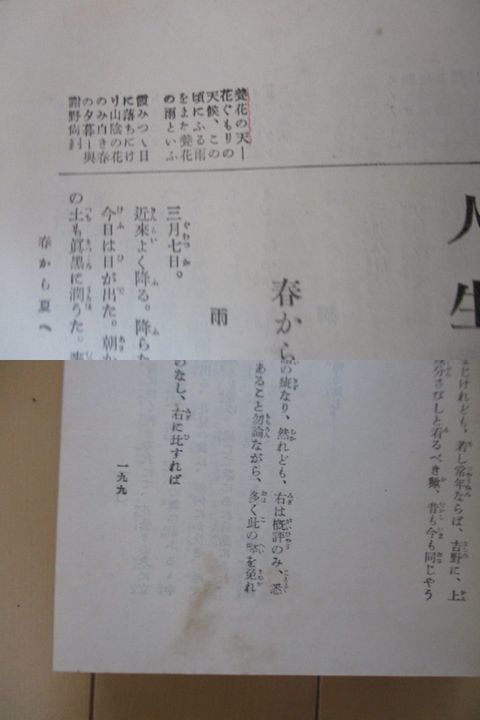 人生
春から
雨
三月七日。
近來よく降る。降ら
今日は日が出た。朝か
の土も眞黑に潤うた。
春から夏へ
養花の天―
花ぐもりの
天候、この
頃にふる雨
をまた養花
の雨といふ
霞みつゝ日
に落ちにけ
り山陰の花
のみ白き春
の夕暮―與
謝野
じけれども、若し常年ならば、吉野に、上
分さびしと看るべき歟、昔も今も同じやう
の疵なり、然れども、右は槪評のみ、悉
あること勿論ながら、多く此の弊を免れ
のなし、右に比すれば
一九九